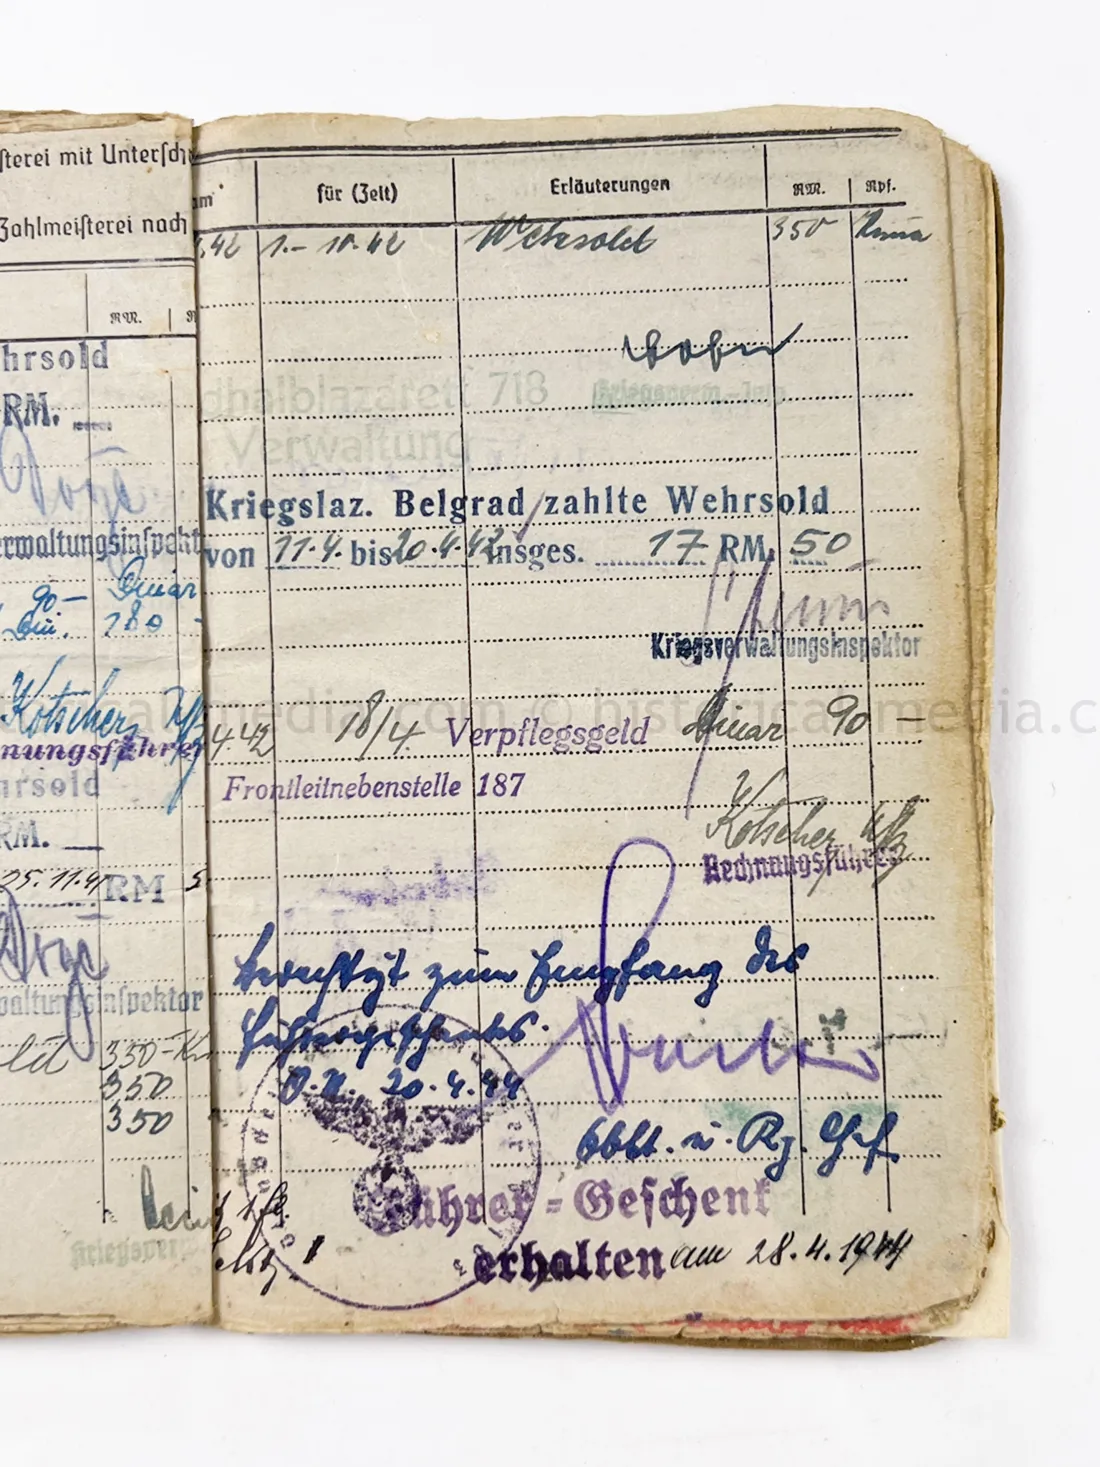 sterei mit Untersch
Zahlmeisterei nach
RM.
hrsold
RM.
erwaltungsinspekt
90 — Dinar
Din. 180 -
Kotscher Uffz
nungsführer
hrsold
RM. —
25.11.41 RM 5
waltungsinspektor
350 - Kn
350
350
Kriegsverw
am
für (Zeit)
Erläuterungen
RM.
Rpf.
.42
1.- 10.42
Wehrsold
350
Kuna
dhalblazarett 718
Verwaltung
Kriegsverw.-Insp
Kriegslaz. Belgrad zahlte Wehrsold
von 11.4. bis 20.4.42 insges. 17 RM. 50
Kriegsverwaltungsinspektor
4.42 18/4. Verpflegsgeld Dinar 90 —
Frontleitnebenstelle 187
Kotscher Uffz
Rechnungsführer
berechtigt zum Empfang des
Führergeschenkes.
O.U. 20.4.44
Obblt. u. Kp. Chef
Führer-Geschenk
erhalten am 28.4.1944
historicalmedia.com © historicalmedia.c